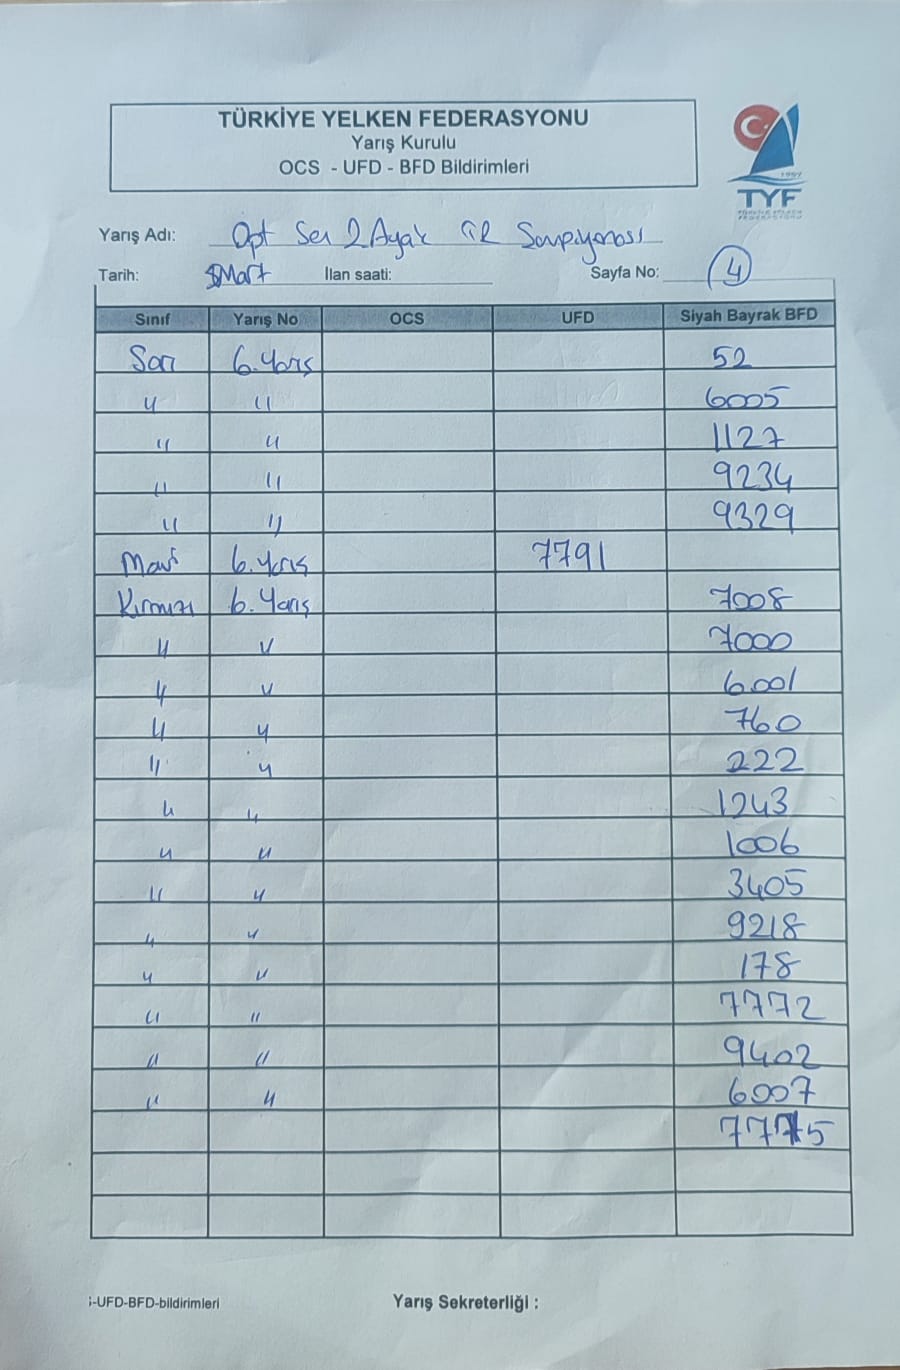 TÜRKİYE YELKEN FEDERASYONU
Yarış Kurulu
OCS - UFD - BFD Bildirimleri
1957
TYF
TÜRKİYE YELKEN
FEDERASYONU
Yarış Adı: Opt Sen 2 Ayak Şampiyonası
Tarih: Mart İlan saati: Sayfa No: 4
Sınıf Yarış No OCS UFD Siyah Bayrak BFD
Sarı 6.Yarış 52
" " 6005
" " 1127
" " 9234
" " 9329
Mavi 6.Yarış 7791
Kırmızı 6.Yarış 7008
" " 7000
" " 6001
" " 760
" " 222
" " 1243
" " 1006
" " 3405
" " 9218
" " 178
" " 7772
" " 9402
" " 6007
7775
-UFD-BFD-bildirimleri Yarış Sekreterliği :